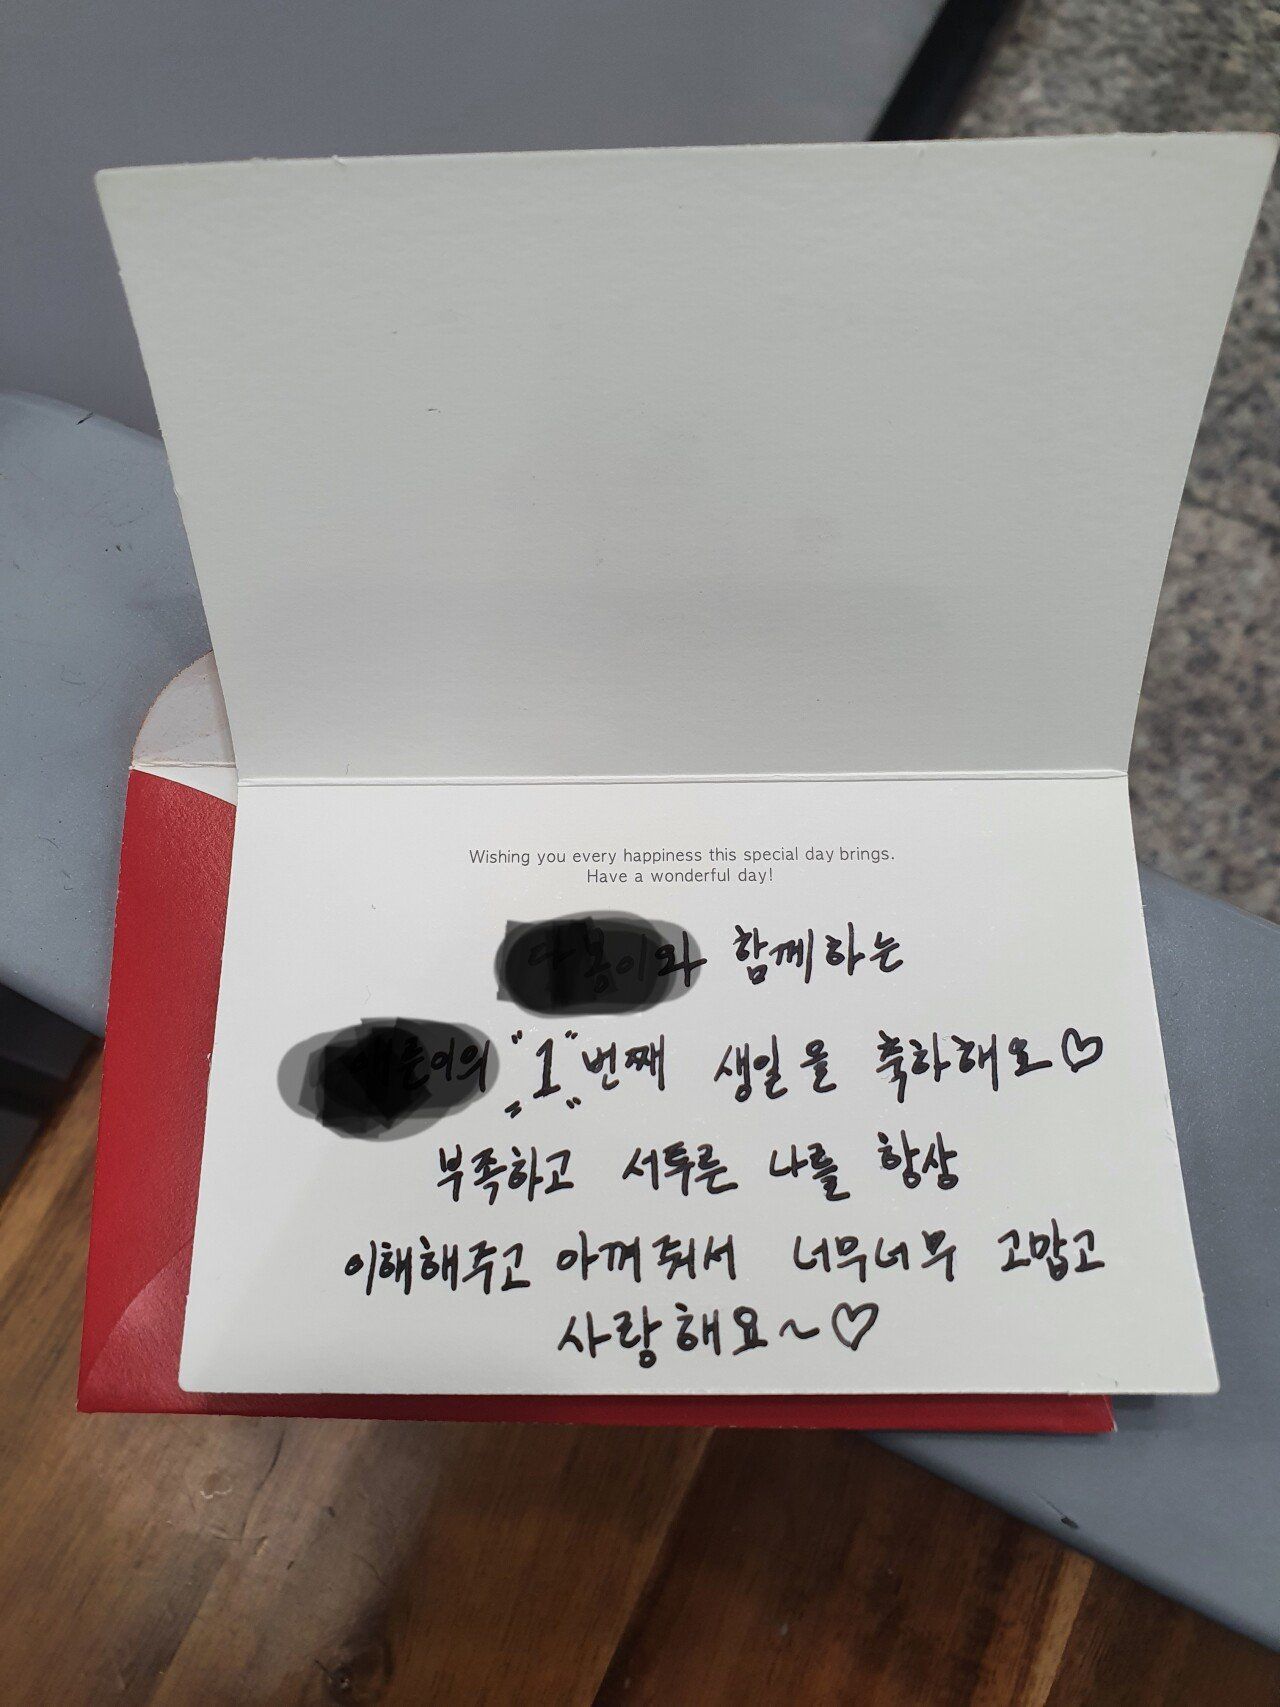 Wishing you every happiness this special day brings.
Have a wonderful day!
함께하는
"1"번째 생일을 축하해요♡
부족하고 서투른 나를 항상
이해해주고 아껴줘서 너무너무 고맙고
사랑해요~♡